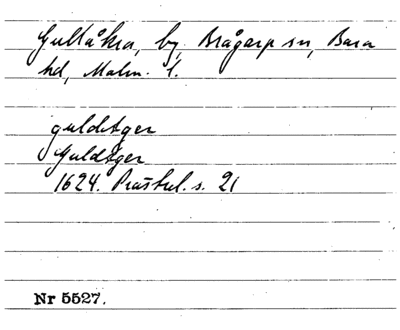 Gullåkra, by, Brågarp sn, Bara
hd, Malm. l.
guldAger
GuldAger
1624. Prästrel. s. 21
Nr 5527.